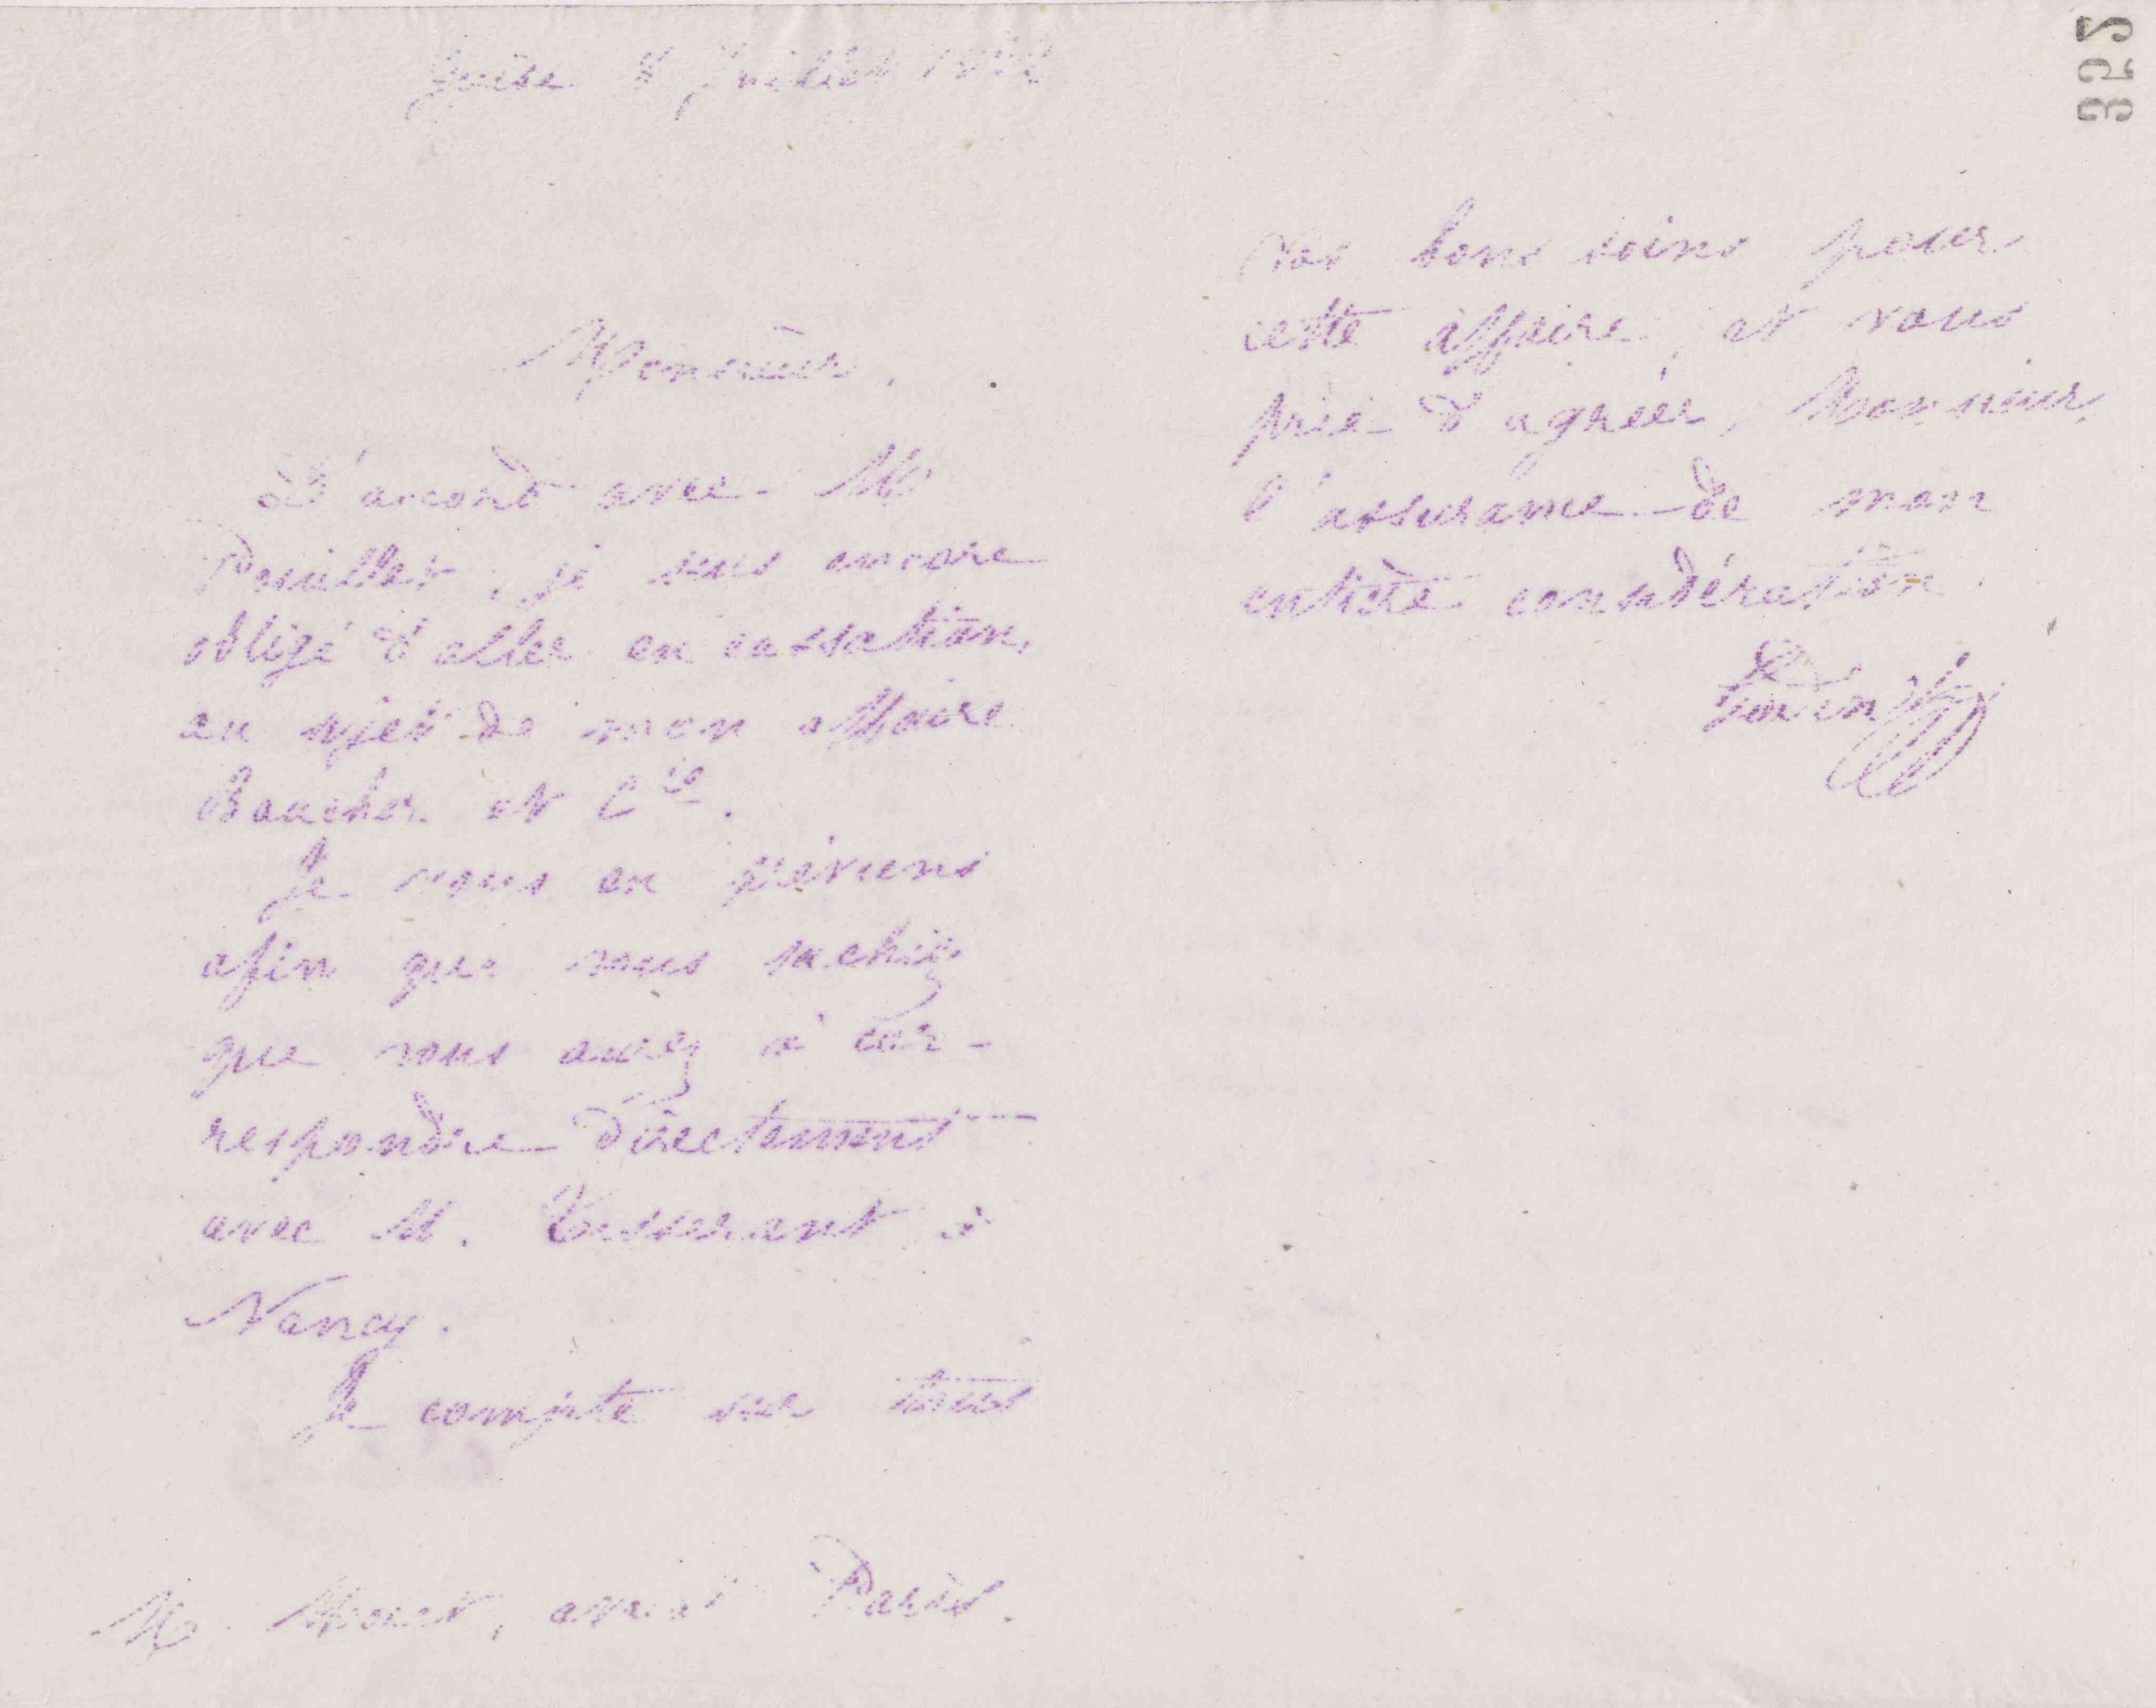 Guise 8 Juillet
Monsieur,
D'accord avec M.
Pouillet, je suis encore
obligé d'aller en cassation,
au sujet de mon affaire
Boucher et Cie.
Je vous en préviens
afin que vous sachiez
que vous aurez à cor-
respondre directement
avec M. Tisserant à
Nancy.
Je compte sur tous
M. avoué Paris.
vos bons soins pour
cette affaire, et vous
prie d'agréer, Monsieur,
l'assurance de mon
entière considération.
Godin
325